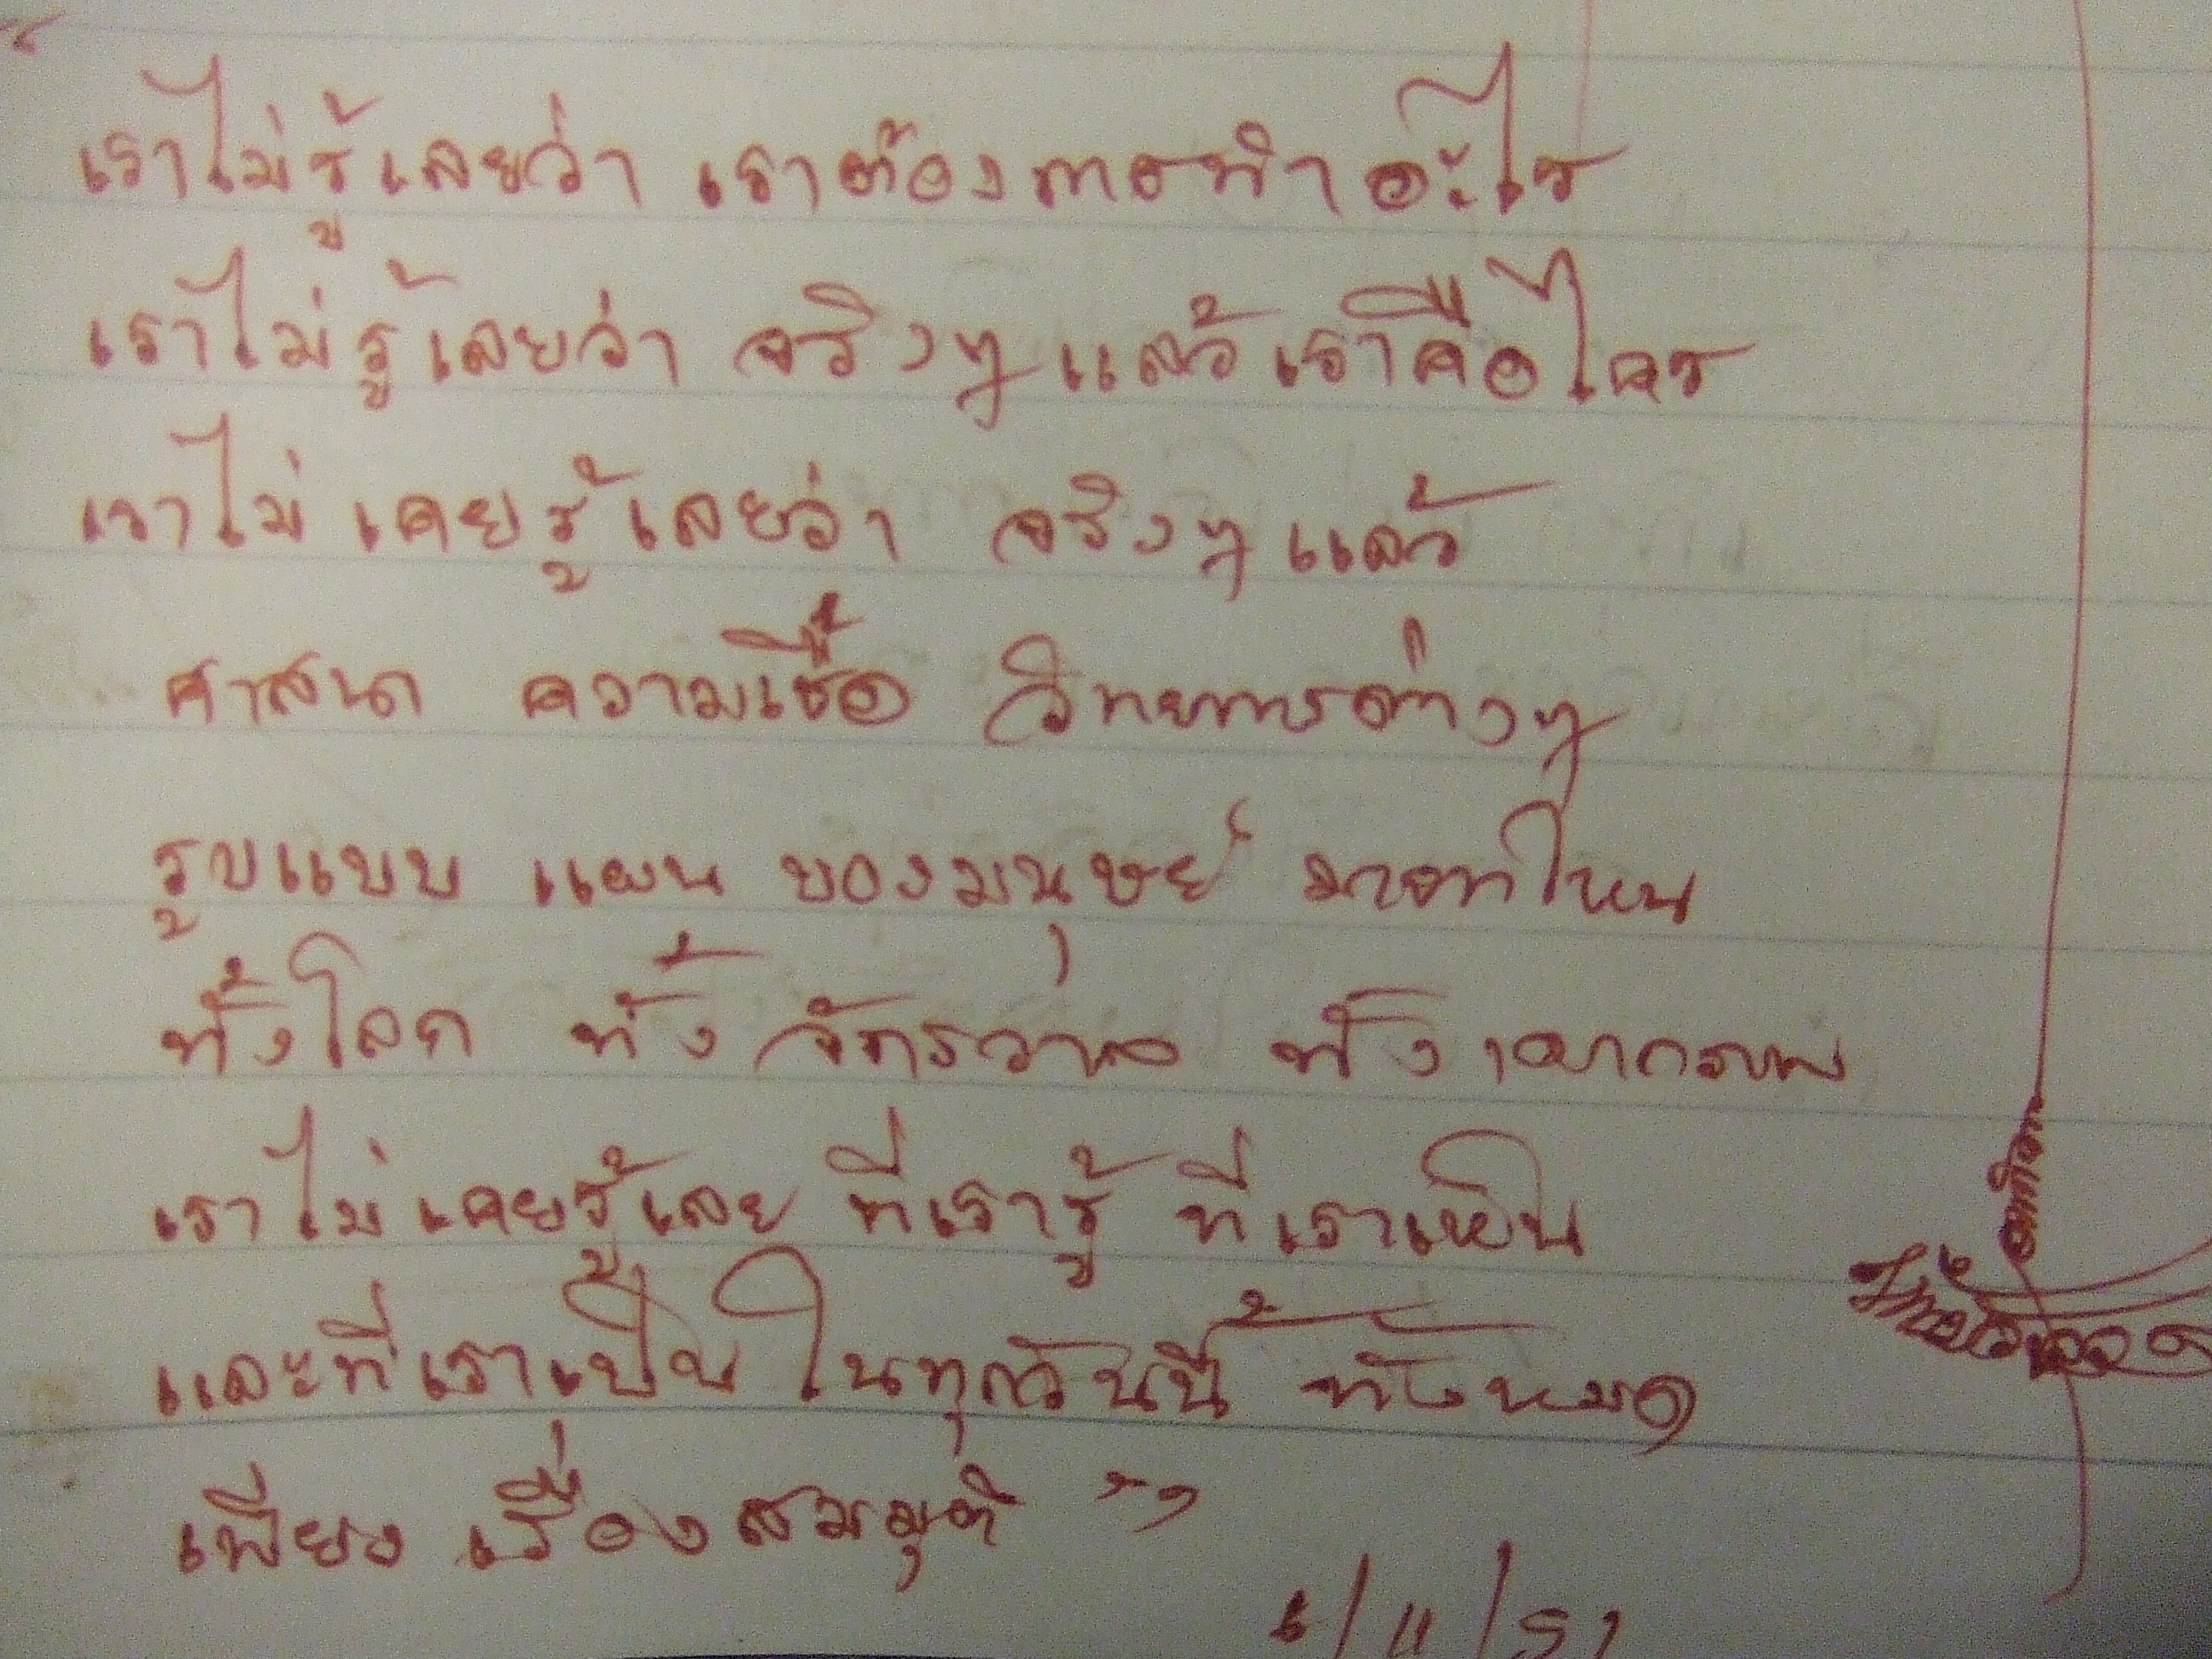 "
เราไม่รู้เลยว่า เราต้องการทำอะไร
เราไม่รู้เลยว่า จริงๆแล้วเราคือใคร
เราไม่เคยรู้เลยว่า จริงๆแล้ว
ศาสนา ความเชื่อ วิทยาการต่างๆ
รูปแบบ แผน ของมนุษย์ มาจากไหน
ทั้งโลก ทั้ง จักรวาล ทั้งเอกภพ
เราไม่เคยรู้เลย ที่เรารู้ ที่เราเห็น
และที่เราเป็น ในทุกวันนี้ ทั้งหมด
เพียง เรื่องสมมุติ "